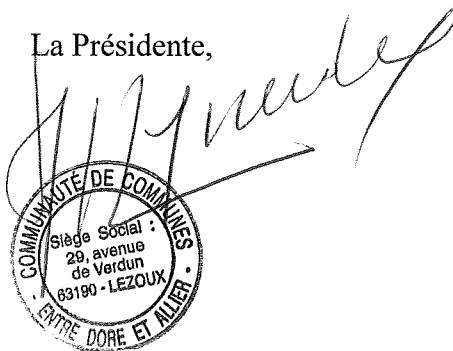 La Présidente,
COMMUNAUTÉ DE COMMUNES
Siège Social :
29, avenue
de Verdun
63190 - LEZOUX
- ENTRE DORE ET ALLIER -